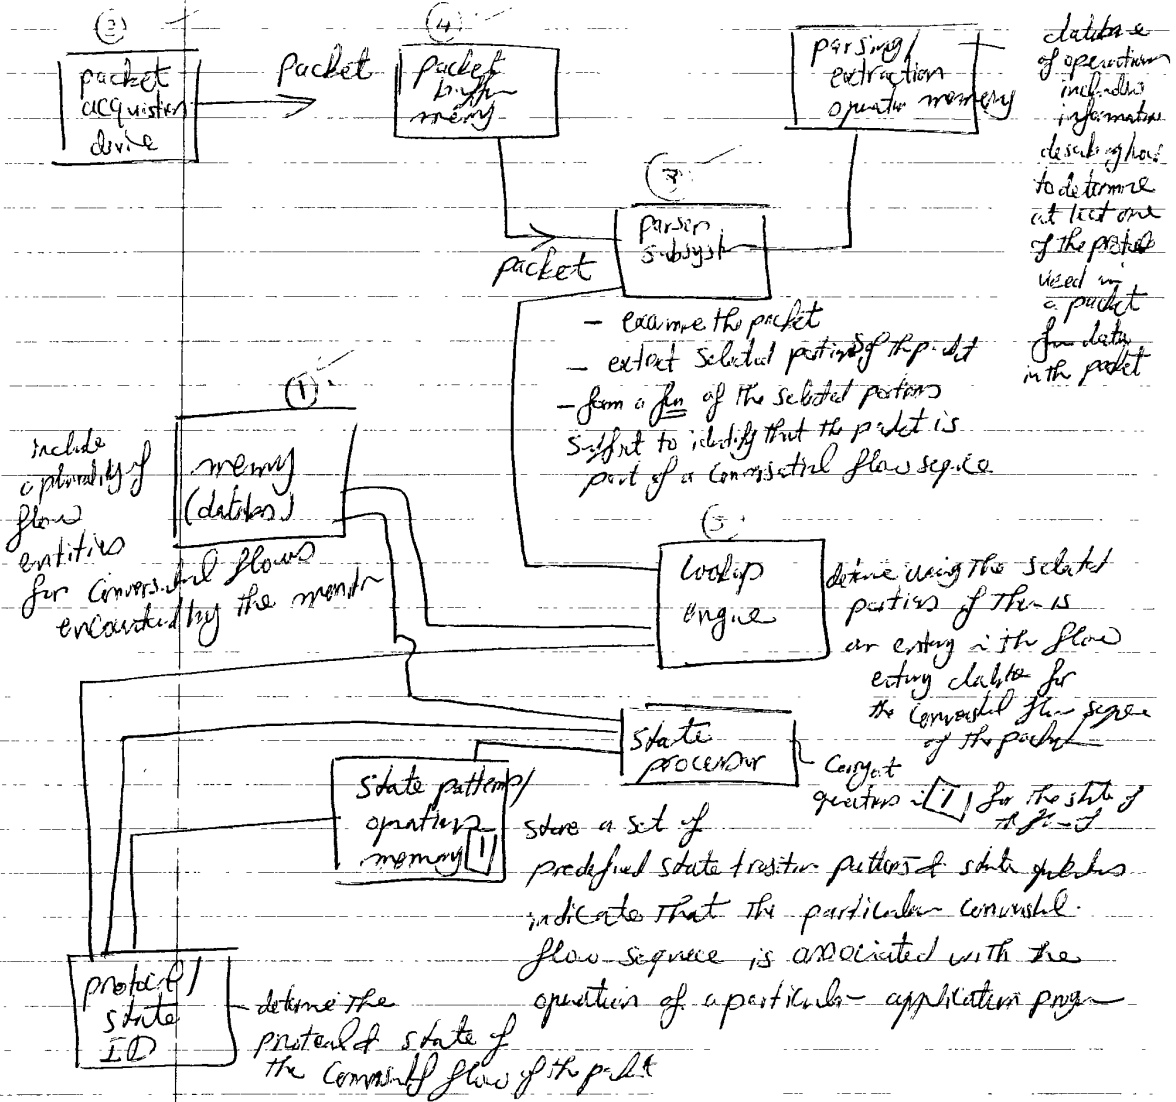 packet
acquisition
device
packet
④
packet
buffer
memory
parsing/
extraction
operator memory
database
of operations
includes
information
describing how
to determine
at least one
of the protocols
used in
a packet
from data
in the packet
parser
subsyst
packet
- examine the packet
- extract selected portions of the packet
- form a fcn of the selected portions
to identify that the packet is
part of a conversational flow sequence
①
memory
(database)
include
a plurality of
flow
entities
for conversational flows
encountered by the monitor
lookup
engine
determine using the selected
portions if there is
an entry in the flow
entry database for
the conversational flow sequence
of the packet
state
processor
operations in 1 for the state of
state patterns/
operations
memory 1
store a set of
predefined state transition patterns & state
indicate that the particular conversational
flow sequence is associated with the
operation of a particular application program
protocol/
state
ID
- determine the
protocol & state of
the conversational flow of the packet